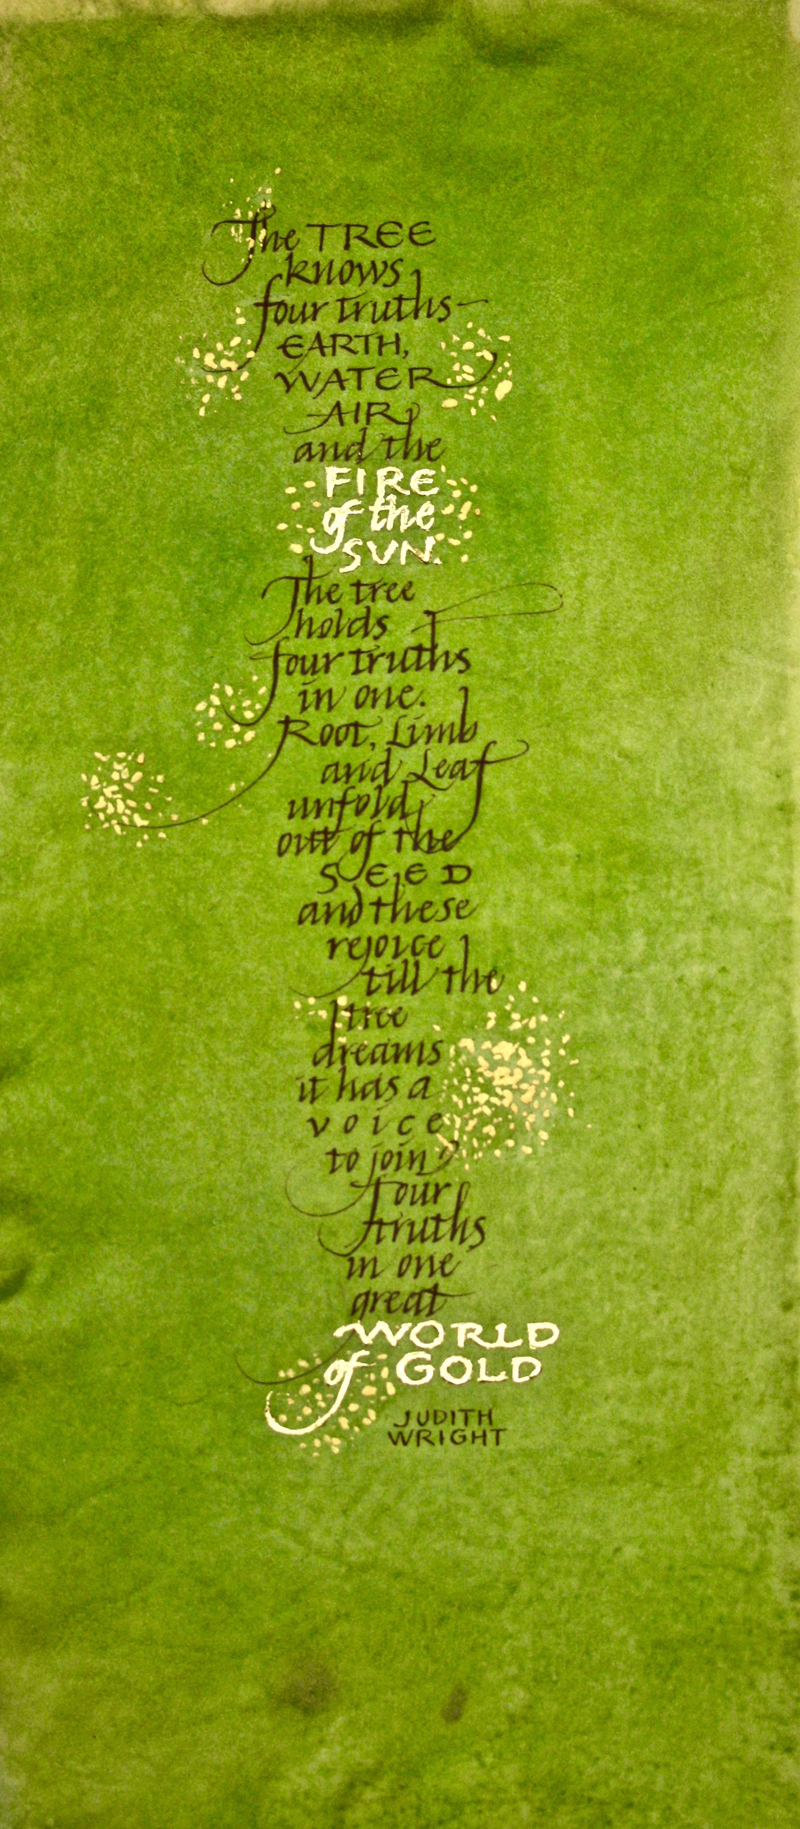 The TREE
knows
four truths—
EARTH,
WATER
AIR
and the
FIRE
of the
SUN.
The tree
holds
four truths
in one.
Root, Limb
and Leaf
unfold
out of the
SEED
and these
rejoice
till the
tree
dreams
it has a
voice
to join
four
truths
in one
great
WORLD
of GOLD
JUDITH
WRIGHT